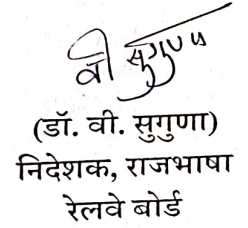 वी सुगुणा
(डॉ. वी. सुगुणा)
निदेशक, राजभाषा
रेलवे बोर्ड